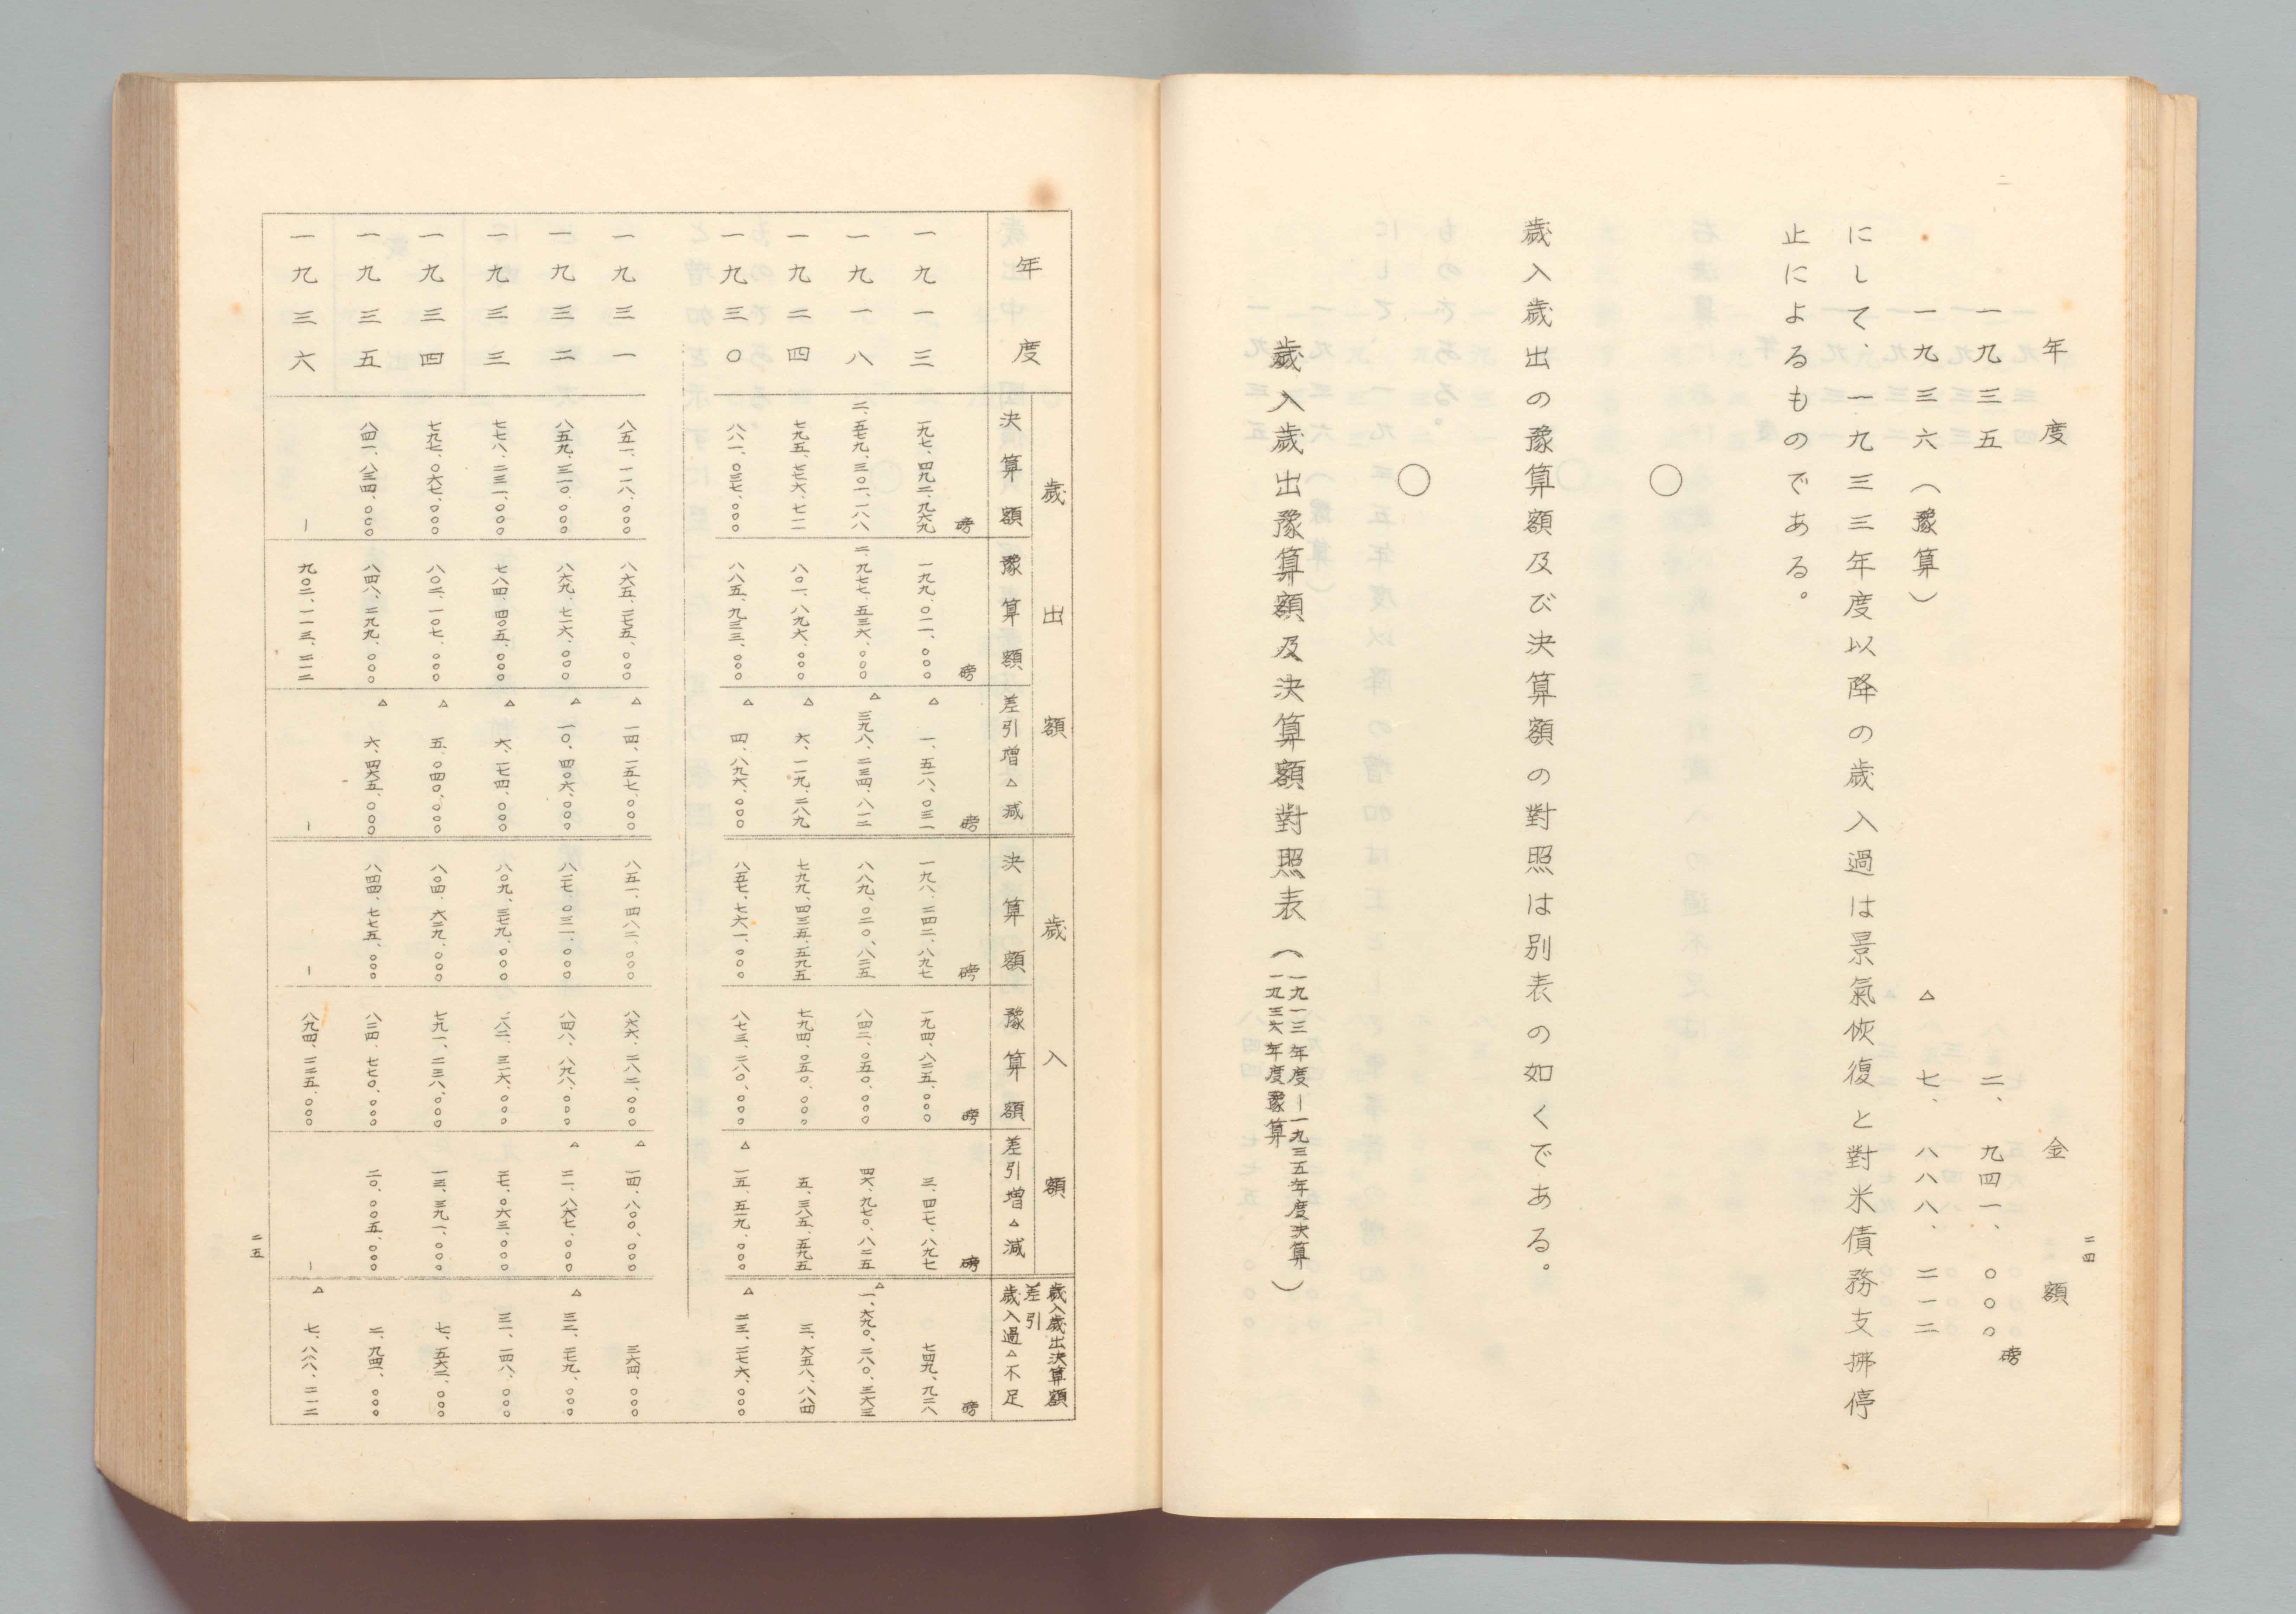 二四
年度　金額
一九三五　二、九四一、〇〇〇磅
一九三六（豫算）　△七、八八八、二一二
にして、一九三三年度以降の歳入過は景氣恢復と對米債務支拂停
止によるものである。
○
歳入歳出の豫算額及び決算額の對照は別表の如くである。
○
歳入歳出豫算額及決算額對照表（一九一三年度―一九三五年度決算
一九三六年度豫算）
年度　歳出額　歳入額　歳入歳出決算額差引歳入過△不足
決算額　豫算額　差引増△減　決算額　豫算額　差引増△減
磅　磅　磅　磅　磅　磅　磅
一九一三　一九七、四九二、九六九　一九九、〇一一、〇〇〇　△一、五一八、〇三一　一九八、二四二、八九七　一九四、八二五、〇〇〇　三、四一七、八九七　七四九、九二八
一九一八　二、五七九、三〇一、一八八　二、九七七、五三六、〇〇〇　△三九八、二三四、八一二　八八九、〇二〇、八二五　八四二、〇五〇、〇〇〇　四六、九七〇、八二五　△一、六九〇、二八〇、三六三
一九二四　七九五、七七六、七一一　八〇一、八九六、〇〇〇　△六、一一九、二八九　七九九、四三五、五九五　七九四、〇五〇、〇〇〇　五、三八五、五九五　三、六五八、八八四
一九三〇　八八一、〇三七、〇〇〇　八八五、九三三、〇〇〇　△四、八九六、〇〇〇　八五七、七六一、〇〇〇　八七三、二八〇、〇〇〇　△一五、五一九、〇〇〇　△二三、二七六、〇〇〇
一九三一　八五一、一一八、〇〇〇　八六五、二七五、〇〇〇　△一四、一五七、〇〇〇　八五一、四八二、〇〇〇　八六六、二八二、〇〇〇　△一四、八〇〇、〇〇〇　三六四、〇〇〇
一九三二　八五九、三一〇、〇〇〇　八六九、七一六、〇〇〇　△一〇、四〇六、〇〇〇　八二七、〇三一、〇〇〇　八四八、八九八、〇〇〇　△二一、八六七、〇〇〇　△三二、二七九、〇〇〇
一九三三　七七八、二三一、〇〇〇　七八四、四〇五、〇〇〇　△六、一七四、〇〇〇　八〇九、三七九、〇〇〇　七八二、三一六、〇〇〇　二七、〇六三、〇〇〇　三一、一四八、〇〇〇
一九三四　七九七、〇六七、〇〇〇　八〇二、一〇七、〇〇〇　△五、〇四〇、〇〇〇　八〇四、六二九、〇〇〇　七九一、二三八、〇〇〇　一三、三九一、〇〇〇　七、五六二、〇〇〇
一九三五　八四一、八三四、〇〇〇　八四八、二九九、〇〇〇　△六、四六五、〇〇〇　八四四、七七五、〇〇〇　八二四、七七〇、〇〇〇　二〇、〇〇五、〇〇〇　二、九四一、〇〇〇
一九三六　―　九〇二、一一三、二一二　―　―　八九四、二二五、〇〇〇　―　△七、八八八、二一二
二五